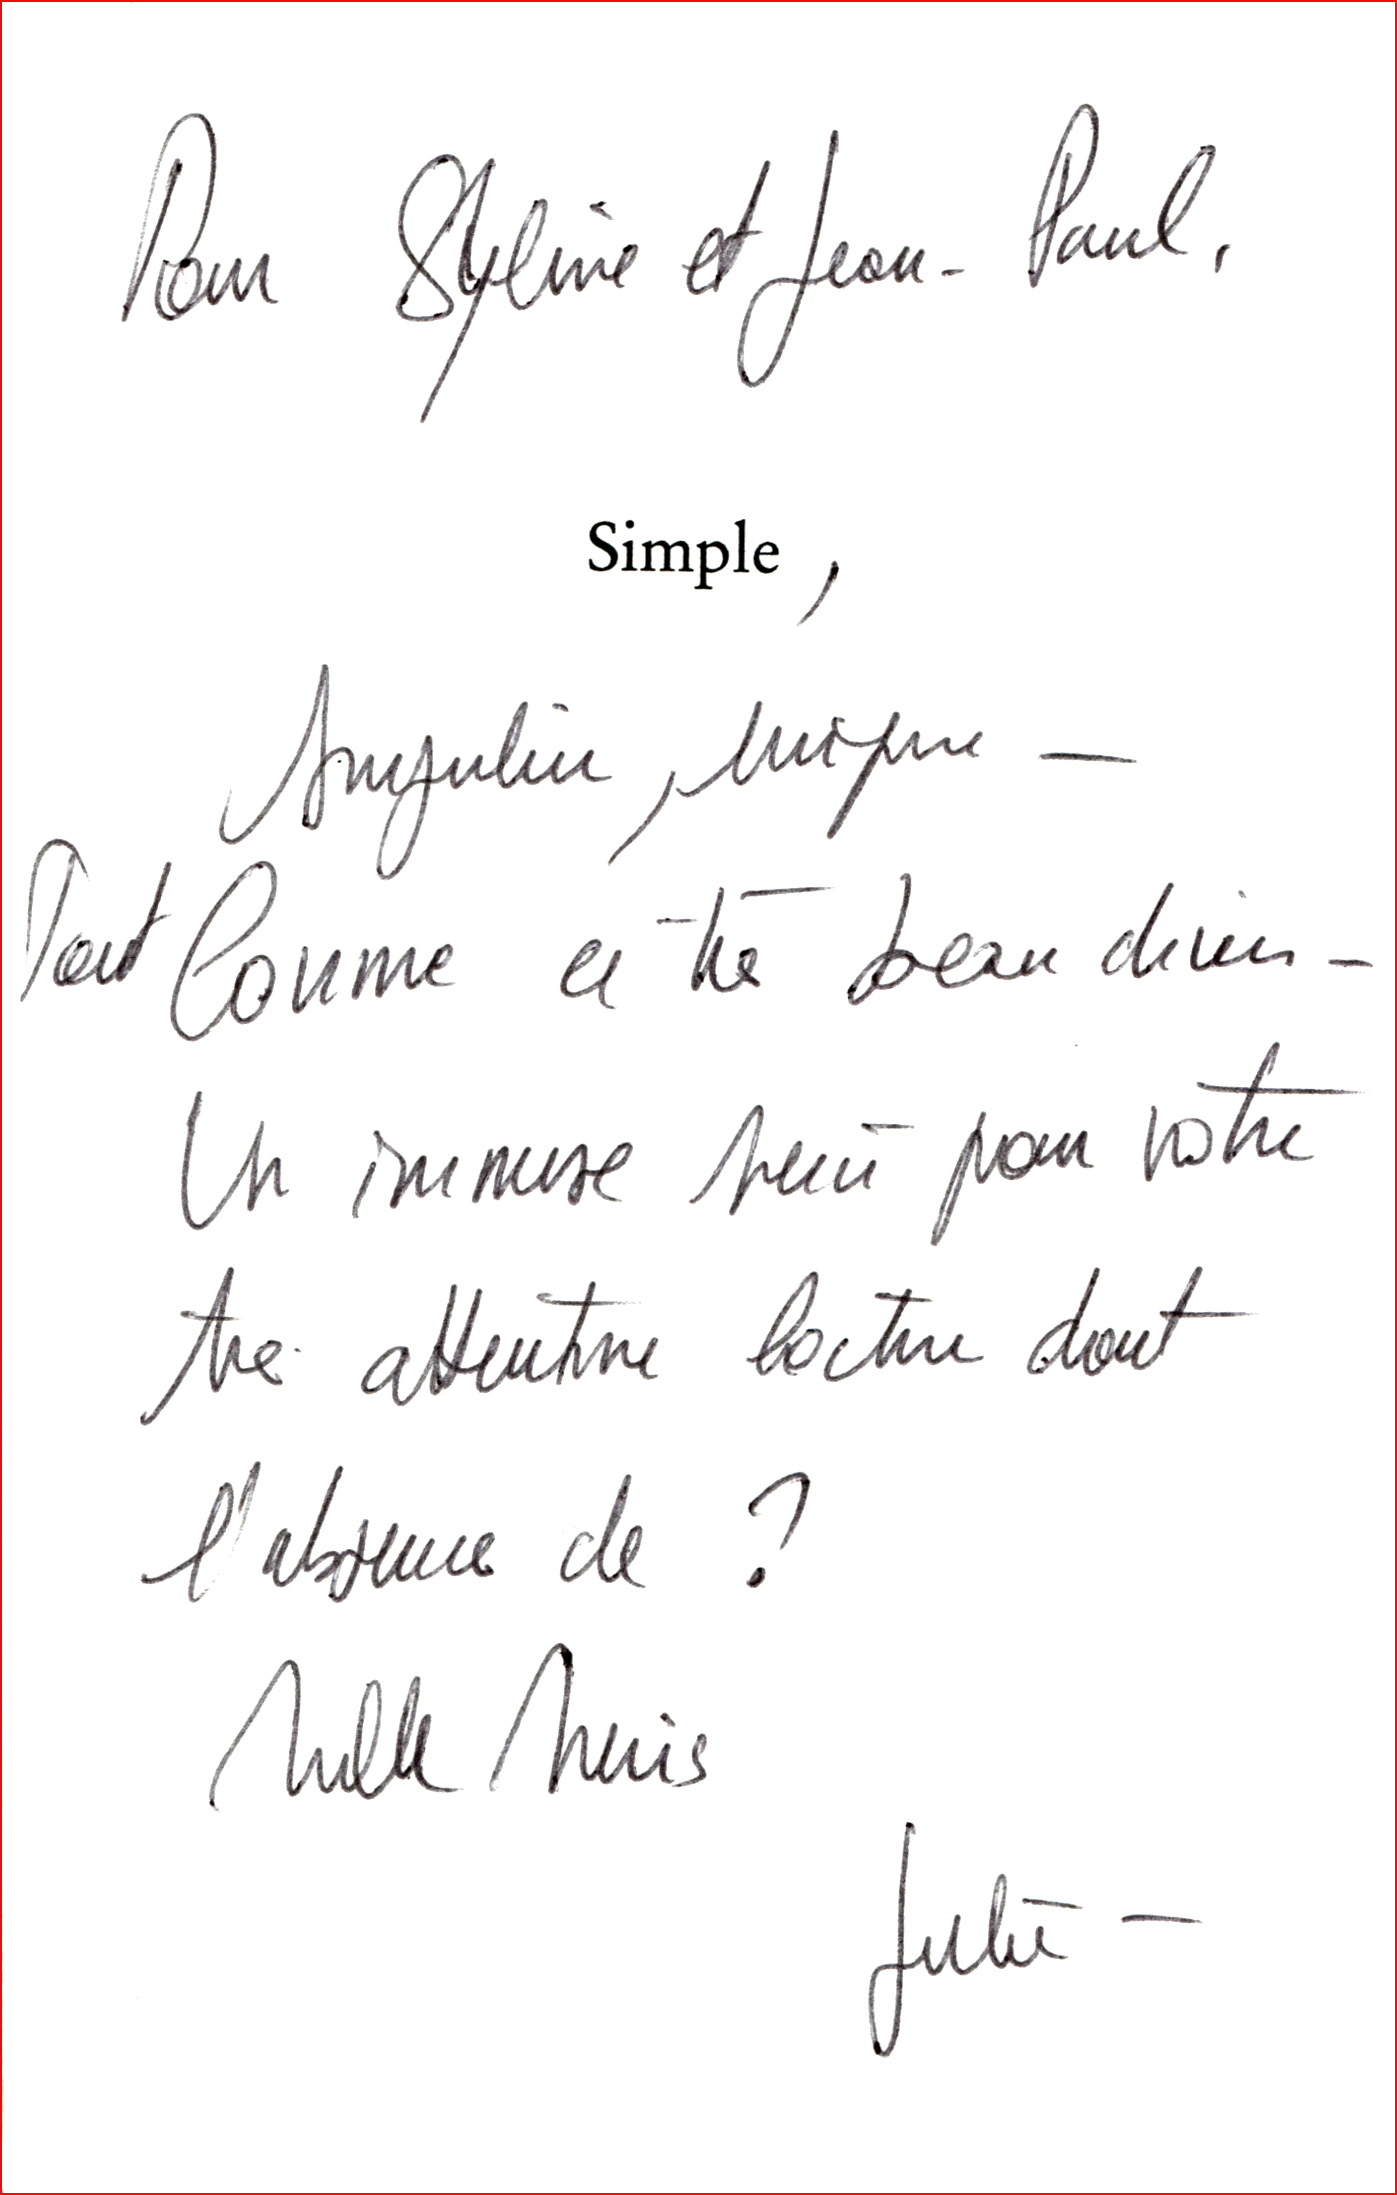 Pour Styline et Jean-Paul,
Simple,
singulier, unique —
Tout comme ce très beau divers —
Un immense merci pour votre
très attentive lecture dont
l'absence de ?
Mille mercis
Juliet —